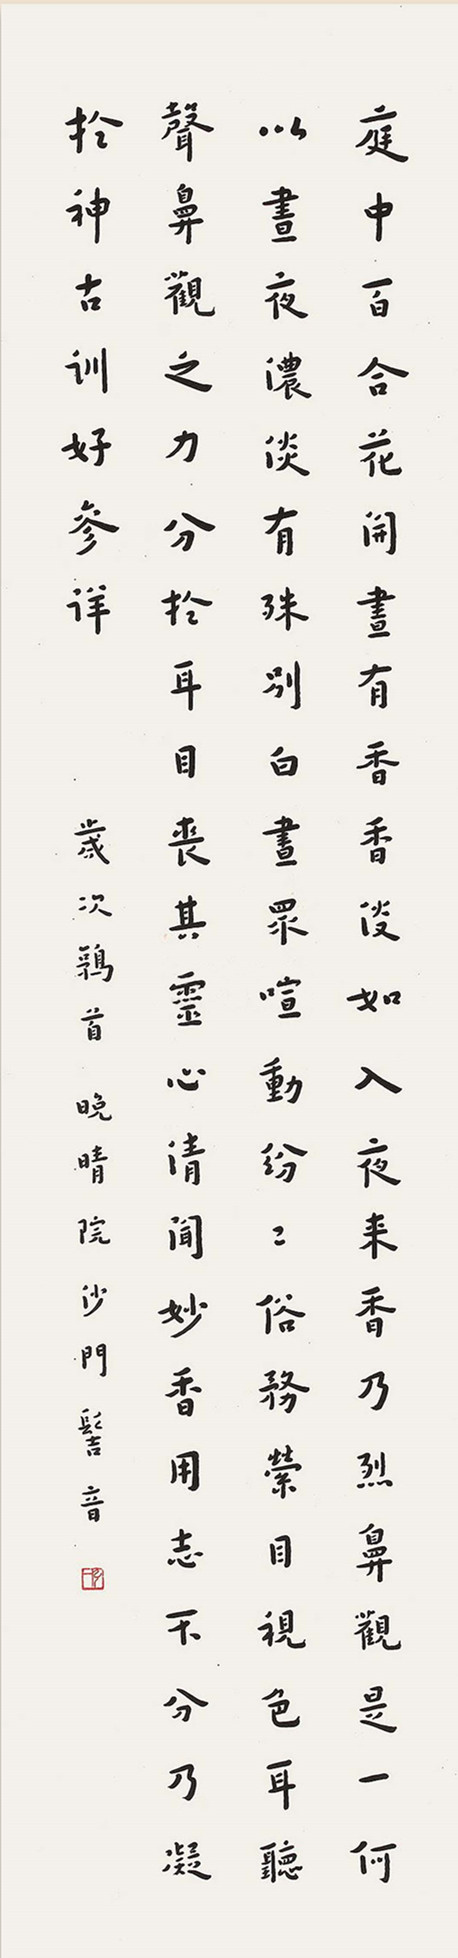 庭中百合花開晝有香香淡如入夜来香乃烈鼻觀是一何
以晝夜濃淡有殊别白晝眾喧動紛〻俗務縈目視色耳聽
聲鼻觀之力分扵耳目喪其靈心清聞妙香用志不分乃凝
扵神古训好參详
歲次鶉首 晚晴院沙門髻音